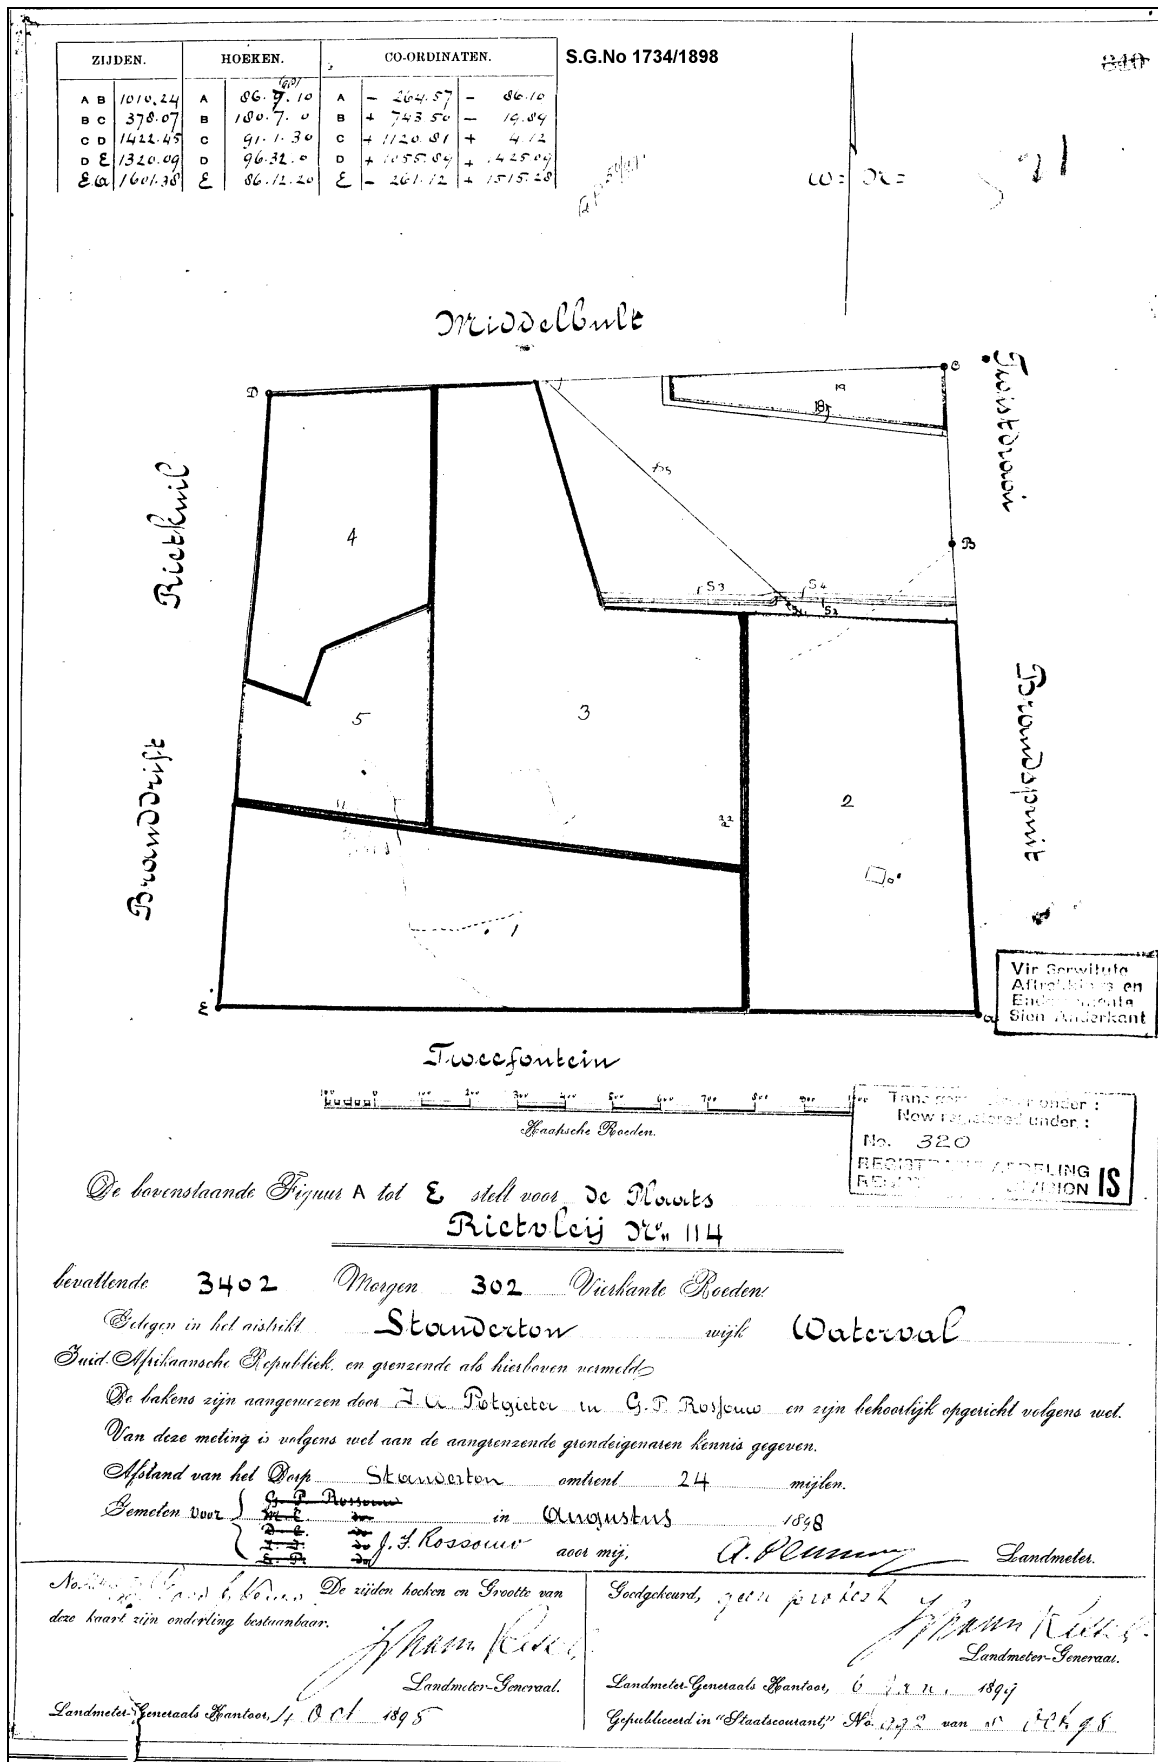 ZIJDEN. HOEKEN. CO-ORDINATEN.
A B 1010.24 A 86.9.10 A - 264.57 - 86.10
B C 378.07 B 180.7.0 B + 743.50 - 19.89
C D 1422.45 C 91.1.30 C + 1120.81 + 4.12
D E 1320.09 D 96.32.0 D + 1055.89 + 1425.09
E a 1601.38 E 86.12.20 E - 261.12 + 1515.28
S.G.No 1734/1898
Middelbult
D
C
Twistdraai
19
Rietkuil
4
B
S3
S4
S2
5
3
Brandspruit
Branddrift
2
1
E
a
Vir Serwitute
Aftrekkings en
Endossemente
Sien Anderkant
Tweefontein
100 0 100 200 300 400 500 600 700 800 900 1000
Kaapsche Roeden.
Now registered under :
No. 320
REGISTRASIE AFDELING
IS
De bovenstaande Figuur A tot E stelt voor de Plaats
Rietvleij No. 114
bevattende 3402 Morgen 302 Vierkante Roeden.
Gelegen in het distrikt Standerton wijk Waterval
Zuid-Afrikaansche Republiek, en grenzende als hierboven vermeld
De bakens zijn aangewezen door J. A. Potgieter en G. P. Rossouw en zijn behoorlijk opgericht volgens wet.
Van deze meting is volgens wet aan de aangrenzende grondeigenaren kennis gegeven.
Afstand van het Dorp Standerton omtrent 24 mijlen.
Gemeten voor G. P. Rossouw
J. F. Rossouw in Augustus 1898
door mij, Landmeter.
No. De zijden hoeken en Grootte van
deze kaart zijn onderling bestaanbaar.
Landmeter-Generaal.
Landmeter-Generaals Kantoor, 4 Oct 1898
Goedgekeurd, geen protest
Landmeter-Generaal.
Landmeter-Generaals Kantoor, 6 Jan. 1899
Gepubliceerd in "Staatscourant," No. 992 van 5 Oct 98